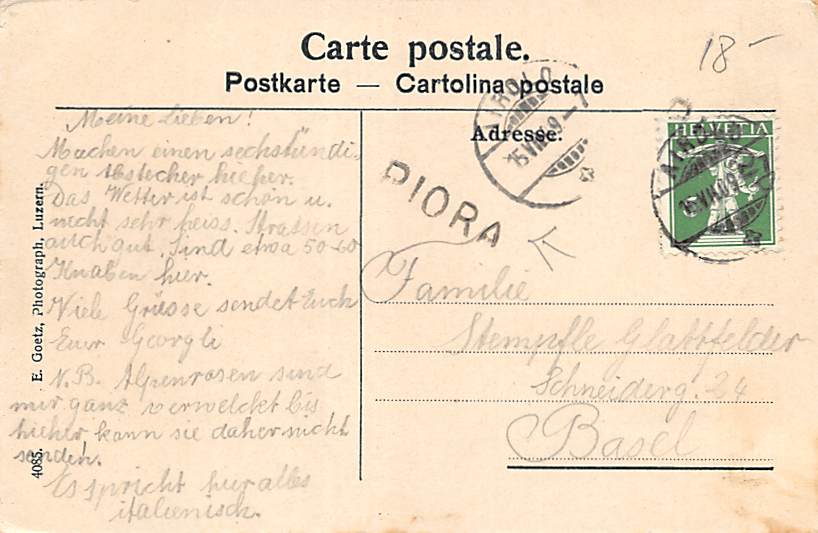 Carte postale.
Postkarte — Cartolina postale
18-
Meine Lieben!
Machen einen sechsstündi-
gen Abstecher hieher.
Das Wetter ist schön u.
nicht sehr heiss. Strassen
auch gut. Sind etwa 50-60
Knaben hier.
Viele Grüsse sendet Euch
Euer Georgli
N.B. Alpenrosen sind
mir ganz verwelckt bis
hieher, kann sie daher nicht
senden.
Es spricht hier alles
italienisch.
Adresse:
AIROLO
15.VII.09-7
PIORA
HELVETIA
5
AIROLO
15.VII.09
Familie
Stempfle Glattfelder
Schneiderg. 24
Basel
4085. E. Goetz, Photograph, Luzern.